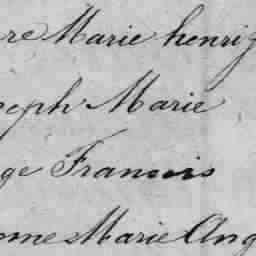 re Marie henri
seph Marie
ge Francois
nne Marie Ang